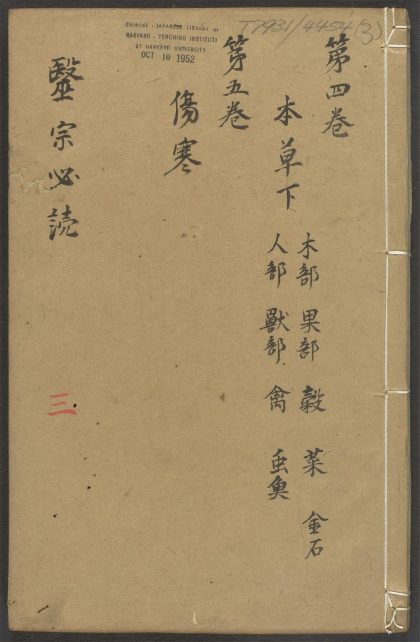 T7931/4454(3)
CHINESE-JAPANESE LIBRARY OF
HARVARD-YENCHING INSTITUTE
AT HARVARD UNIVERSITY
OCT 10 1952
第四卷
本草下
木部 果部 穀 菜 金石
人部 獸部 禽 虫魚
第五卷
傷寒
醫宗必読
三